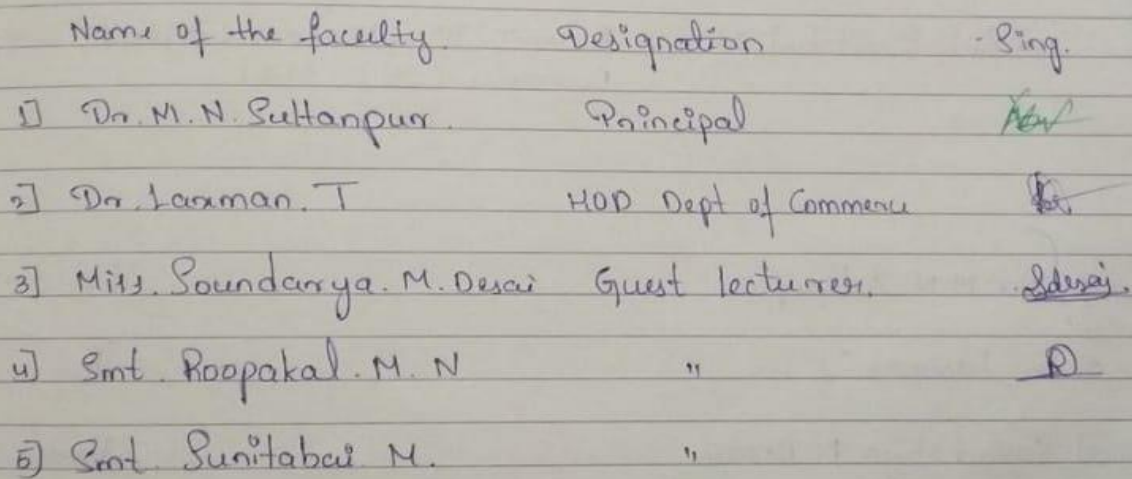 Name of the faculty Designation Sing.
1] Dr. M. N. Sultanpur. Principal
2] Dr. Laxman. T HOD Dept of Commerce
3] Miss. Soundarya. M. Desai Guest lecturer. Sdesai.
4] Smt. Roopakal. M. N " R
5] Smt Sunitabai M. "